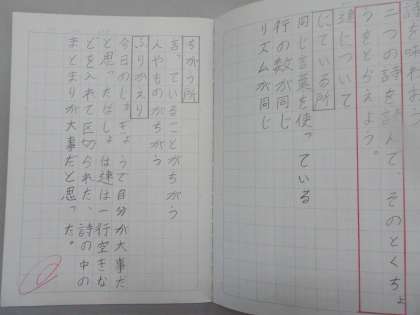 詩を味わおう
二つの詩を読んで、そのとくちょ
うをとらえよう。
連について
にている所
同じ言葉を使っている
行の数が同じ
リズムが同じ
ちがう所
言っていることがちがう
人やものがちがう
ふりかえり
今日のじゅぎょうで自分が大事だ
と思ったばしょは連は一行空きな
どを入れて区切られた、詩の中の
まとまりが大事だと思った。